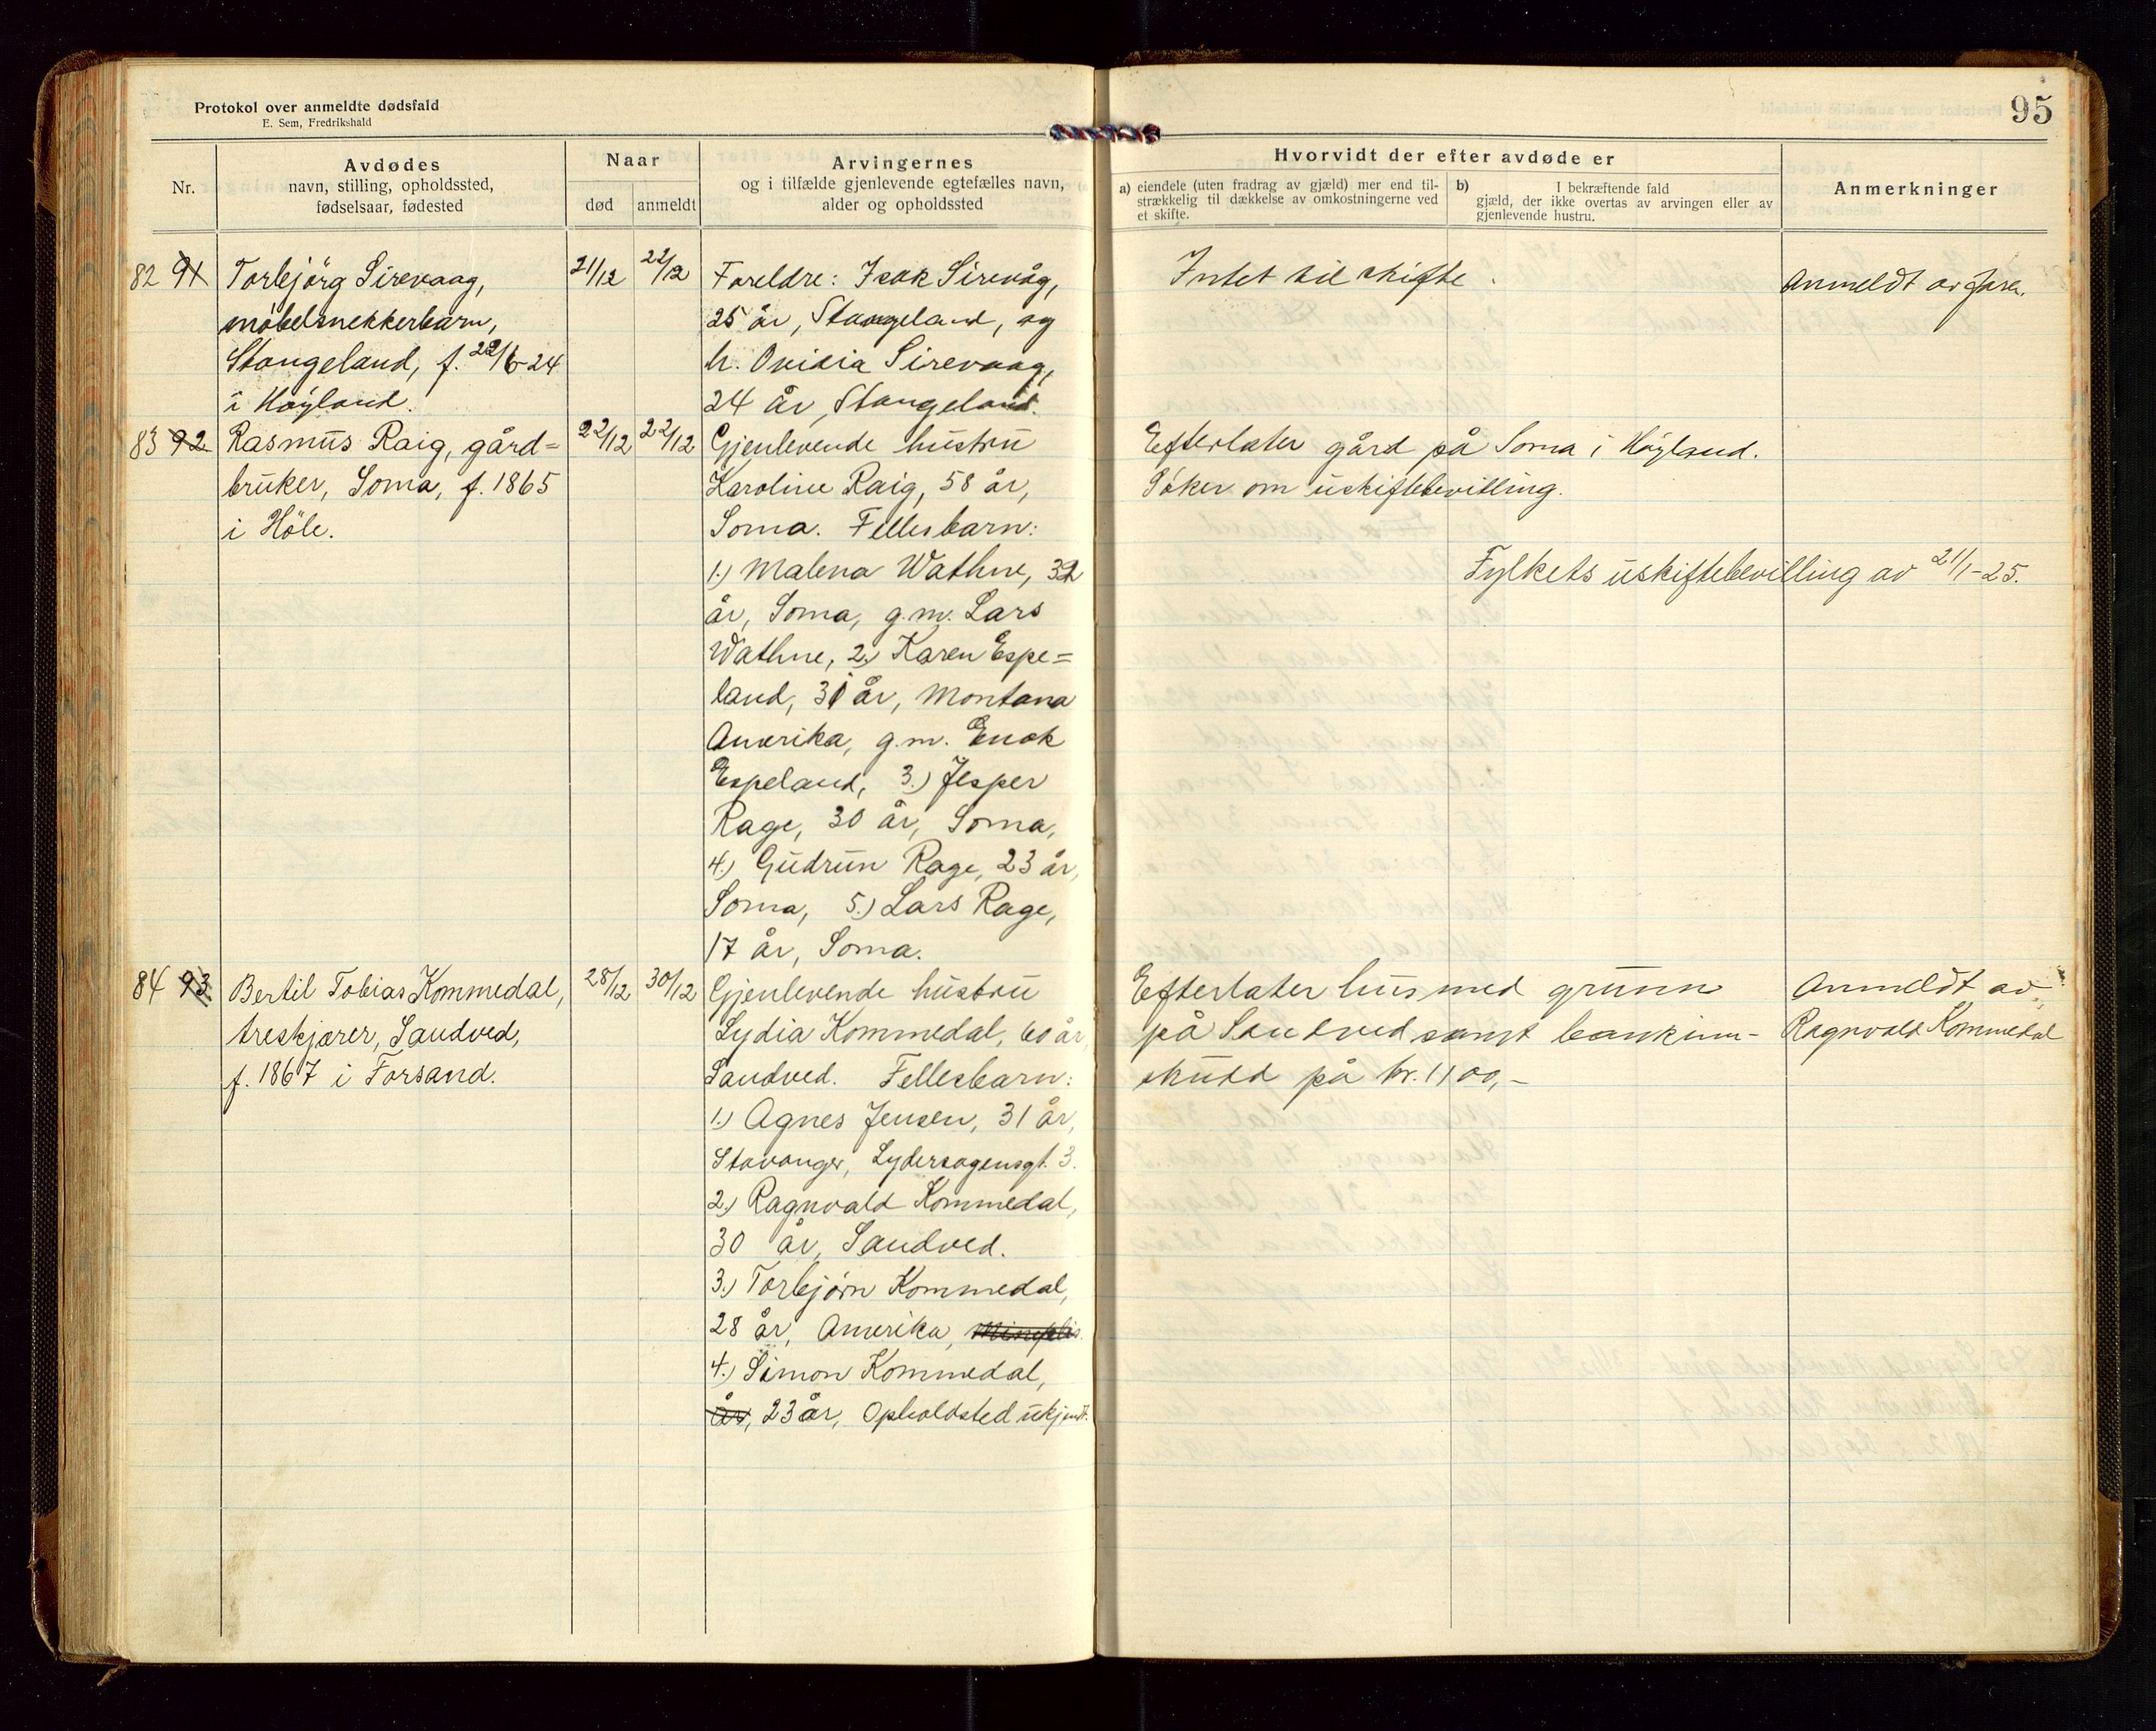 Protokol over anmeldte dødsfald
E. Sem, Fredrikshald
95
Nr.
Avdødes
navn, stilling, opholdssted,
fødselsaar, fødested
Naar
død
anmeldt
Arvingernes
og i tilfælde gjenlevende egtefælles navn,
alder og opholdssted
Hvorvidt der efter avdøde er
a) eiendele (uten fradrag av gjæld) mer end til-
strækkelig til dækkelse av omkostningerne ved
et skifte.
b) I bekræftende fald
gjæld, der ikke overtas av arvingen eller av
gjenlevende hustru.
Anmerkninger
82 91
Torbjörg Sirevaag,
møbelsnekkerbarn,
Stangeland, f. 22/6-24
i Høyland.
21/12
22/12
Foreldre: Isak Sirevåg,
25 år, Stangeland, og
h. Ovidia Sirevaag,
24 år, Stangeland.
Intet til skifte.
Anmeldt av faren.
83 92
Rasmus Raig, gård=
bruker, Soma, f. 1865
i Höle.
22/12
22/12
Gjenlevende hustru
Karoline Raig, 58 år,
Soma. Fellesbarn:
1.) Malena Wathne, 32
år, Soma, g.m. Lars
Wathne, 2.) Karen Espe=
land, 31 år, Montana
Amerika, g.m. Enok
Espeland, 3.) Jesper
Rage, 30 år, Soma,
4.) Gudrun Rage, 23 år,
Soma, 5.) Lars Rage,
17 år, Soma.
Efterlater gård på Soma i Höyland.
Söker om uskiftebevilling.
Fylkets uskiftebevilling av 21/1-25.
84 93
Bertil Tobias Kommedal,
treskjærer, Sandved,
f. 1867 i Forsand.
28/12
30/12
Gjenlevende hustru
Lydia Kommedal, 60 år,
Sandved. Fellesbarn:
1.) Agnes Jensen, 31 år,
Stavanger, Lydersagensgt. 3.
2.) Ragnvald Kommedal,
30 år, Sandved.
3.) Torbjørn Kommedal,
28 år, Amerika,
4.) Simon Kommedal,
år, 23 år, Opholdsted ukjendt.
Efterlater hus med grunn
på Sandved samt bankinn-
skudd på kr. 1100,-
Anmeldt av
Ragnvald Kommedal